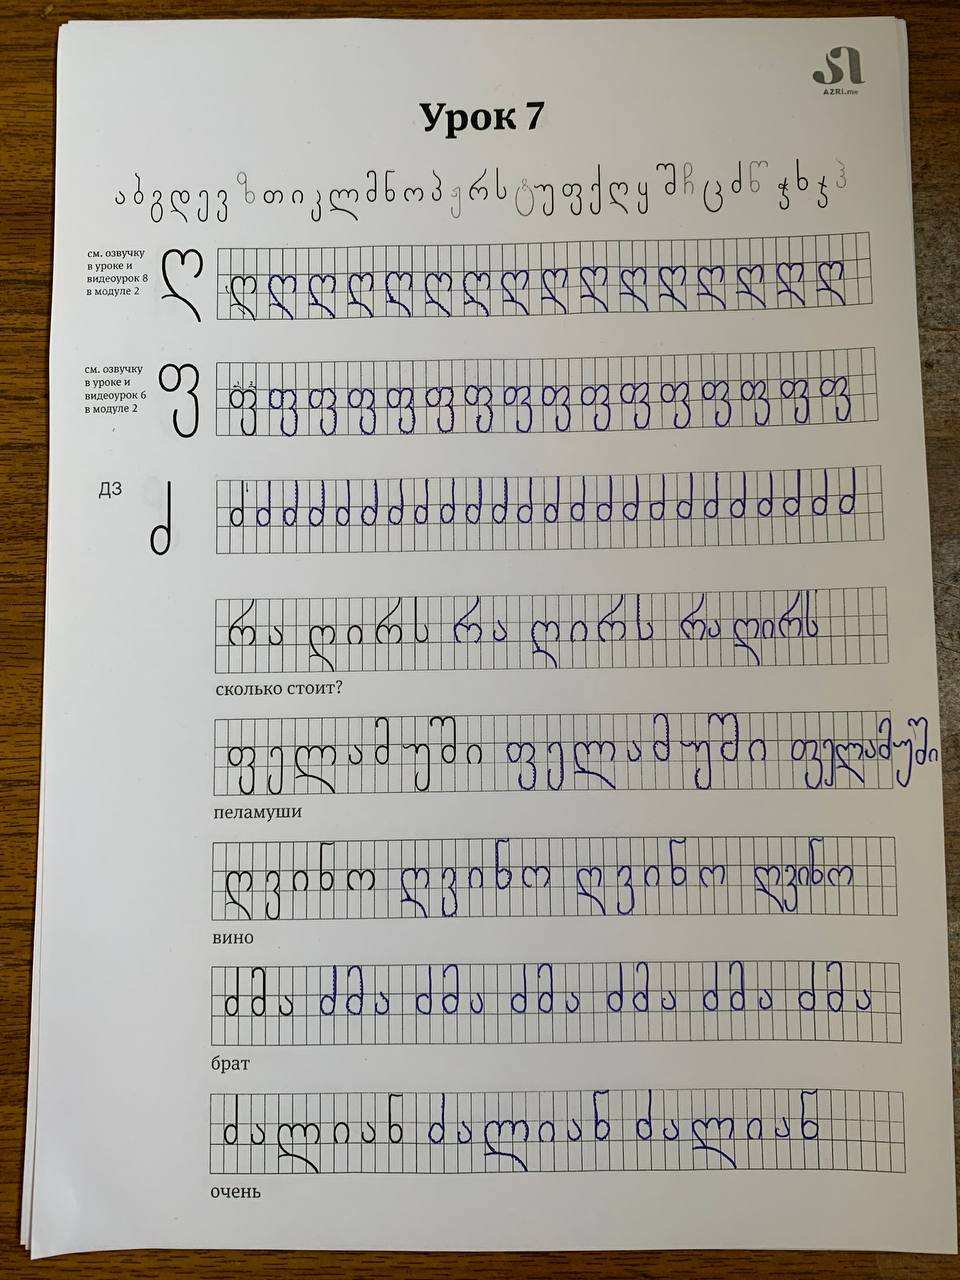 AZRi.me
Урок 7
ა ბ გ დ ე ვ ზ თ ი კ ლ მ ნ ო პ ჟ რ ს ტ უ ფ ქ ღ ყ შ ჩ ც ძ წ ჭ ხ ჯ ჰ
см. озвучку
в уроке и
видеоурок 8
в модуле 2
ღ ღ ღ ღ ღ ღ ღ ღ ღ ღ ღ ღ ღ ღ ღ ღ ღ
см. озвучку
в уроке и
видеоурок 6
в модуле 2
ფ ფ ფ ფ ფ ფ ფ ფ ფ ფ ფ ფ ფ ფ ფ ფ ფ
ДЗ
ძ ძ ძ ძ ძ ძ ძ ძ ძ ძ ძ ძ ძ ძ ძ ძ ძ ძ ძ ძ ძ ძ ძ ძ ძ
რა ღირს რა ღირს რა ღირს
сколько стоит?
ფელამუში ფელამუში ფელამუში
пеламуши
ღვინო ღვინო ღვინო ღვინო
вино
ძმა ძმა ძმა ძმა ძმა ძმა ძმა
брат
ძალიან ძალიან ძალიან
очень